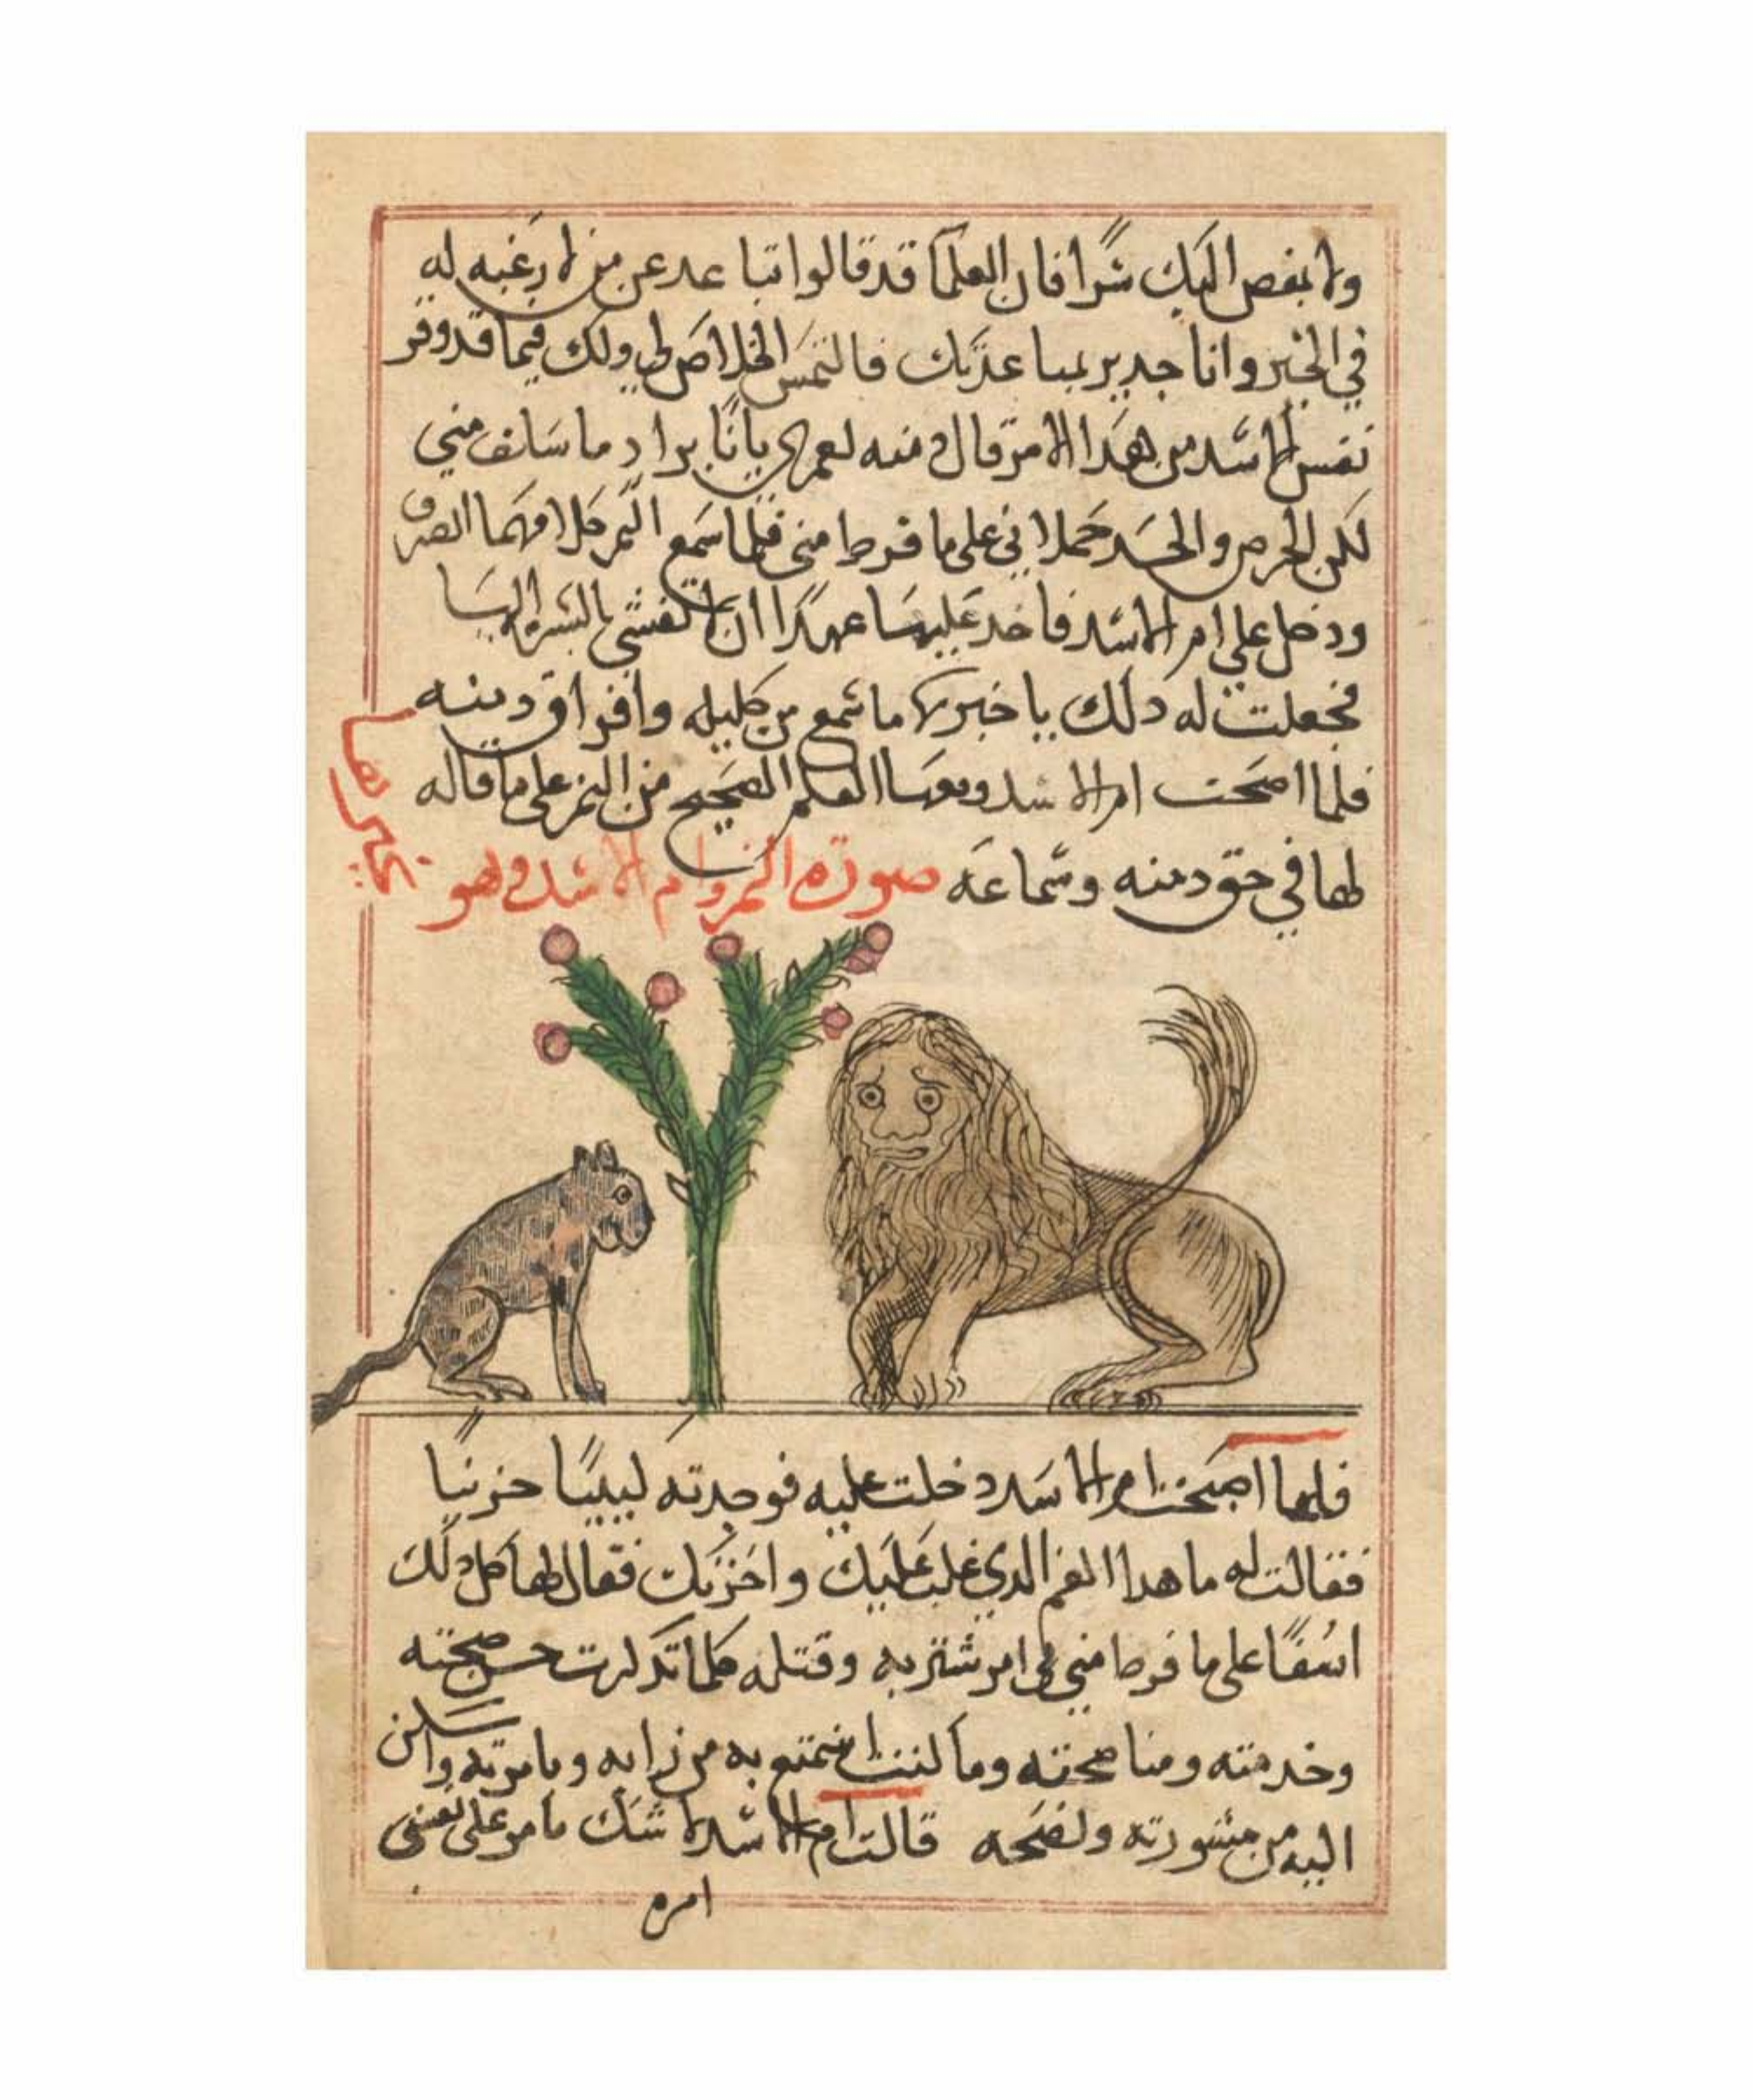 ولا بفص اليك شرا فان العلما قد قالوا تباعد عن من لا رغبه له
في الخير وانا جدير بمباعدتك فالتمس الخلاص لي ولك فيما قد وقر
نفس الاسد من هدا الامر قال دمنه لعمري يانا براد ما سلف مني
لكن الحرص والحسد حملاني على ما فرط مني فلما سمع النمر كلامهما انصرف
ودخل علي ام الاسد فاخد عليها عهدا ان لا تفشي بالسر اليها
فجعلت له دلك ياخبرها ما سمع من كليله وافراق دمنه
فلما اصبحت ام الاسد ومعها العلم الصحيح من النمر على ما قاله
لها في حق دمنه وسماعه صورة النمر وام الاسد وهو
يخبرها
فلما اصبحت ام الاسد دخلت عليه فوجدته لبيبا حزينا
فقالت له ما هدا الغم الدي غلب عليك واحزنك فقال لها كل دلك
اسفا على ما فرط مني في امر شتربه وقتله كلما تدكرت حسن صحبته
وخدمته ومناصحته وما كنت انتمتع به من رايه ويامرته واسكن
اليه من مشورته ونصحه قالت ام الاسد لا شك مامر على نفسي
امره